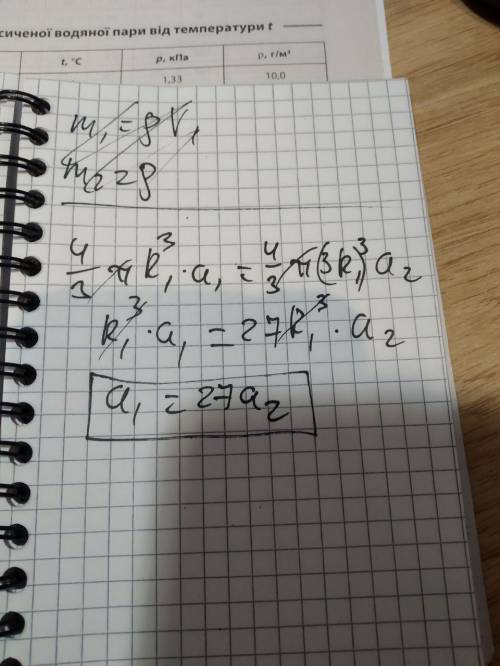 сиченої водяної пари від температури t
t, °C p, кПа ρ, г/м³
1,33 10,0
m₁ = ρV₁
m₂ = ρ
4/3 π R₁³ · a₁ = 4/3 π (3R₁)³ a₂
R₁³ · a₁ = 27R₁³ · a₂
a₁ = 27a₂